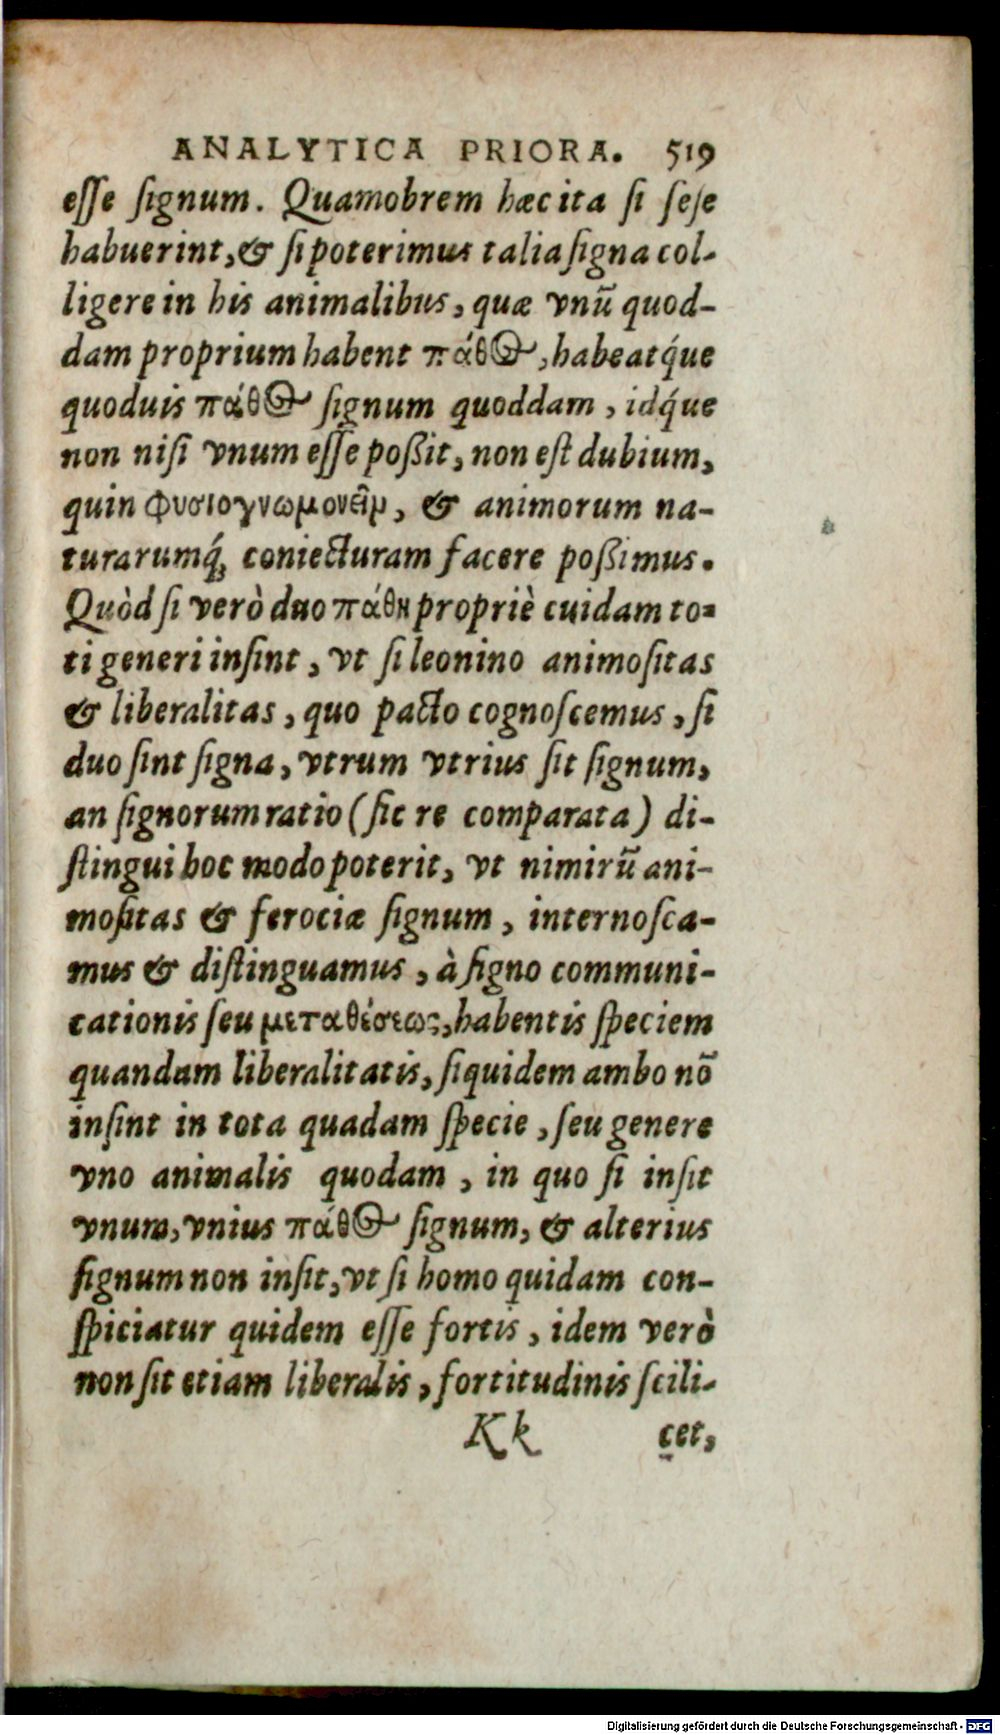 ANALYTICA PRIORA. 519
esse signum. Quamobrem hæc ita si sese
habuerint, & si poterimus talia signa col-
ligere in his animalibus, quæ vnū quod-
dam proprium habent πάθος, habeatq́ue
quoduis πάθος signum quoddam, idq́ue
non nisi vnum esse poßit, non est dubium,
quin φυσιογνωμονεῖν, & animorum na-
turarumq́; coniecturam facere poßimus.
Quòd si verò duo πάθη propriè cuidam to-
ti generi insint, vt si leonino animositas
& liberalitas, quo pacto cognoscemus, si
duo sint signa, vtrum vtrius sit signum,
an signorum ratio (sic re comparata) di-
stingui hoc modo poterit, vt nimirū ani-
mositas & ferociæ signum, internosca-
mus & distinguamus, à signo communi-
cationis seu μεταθέσεως, habentis speciem
quandam liberalitatis, siquidem ambo nō
insint in tota quadam specie, seu genere
vno animalis quodam, in quo si insit
vnum, vnius πάθος signum, & alterius
signum non insit, vt si homo quidam con-
spiciatur quidem esse fortis, idem verò
non sit etiam liberalis, fortitudinis scili-
Kk cet,
Digitalisierung gefördert durch die Deutsche Forschungsgemeinschaft - DFG